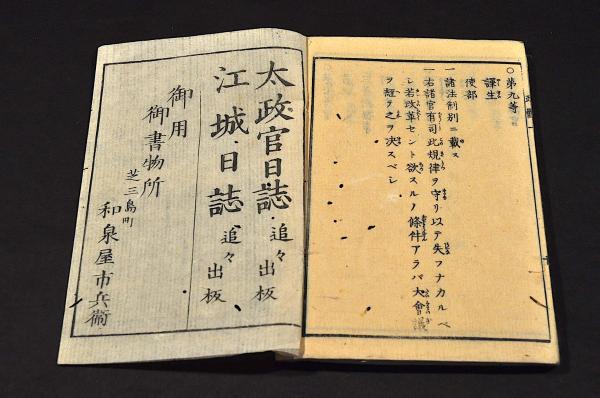 〇第九等官
譯生
使部
一諸法制別ニ載ス
一右諸官有司此規律ヲ守リ以テ失フナカルベ
シ若改革セント欲スルノ條件アラバ大會議
ヲ経テ之ヲ決スベシ
太政官日誌 追々出板
江城日誌 追々出板
御用
御書物所
芝三島町
和泉屋市兵衞